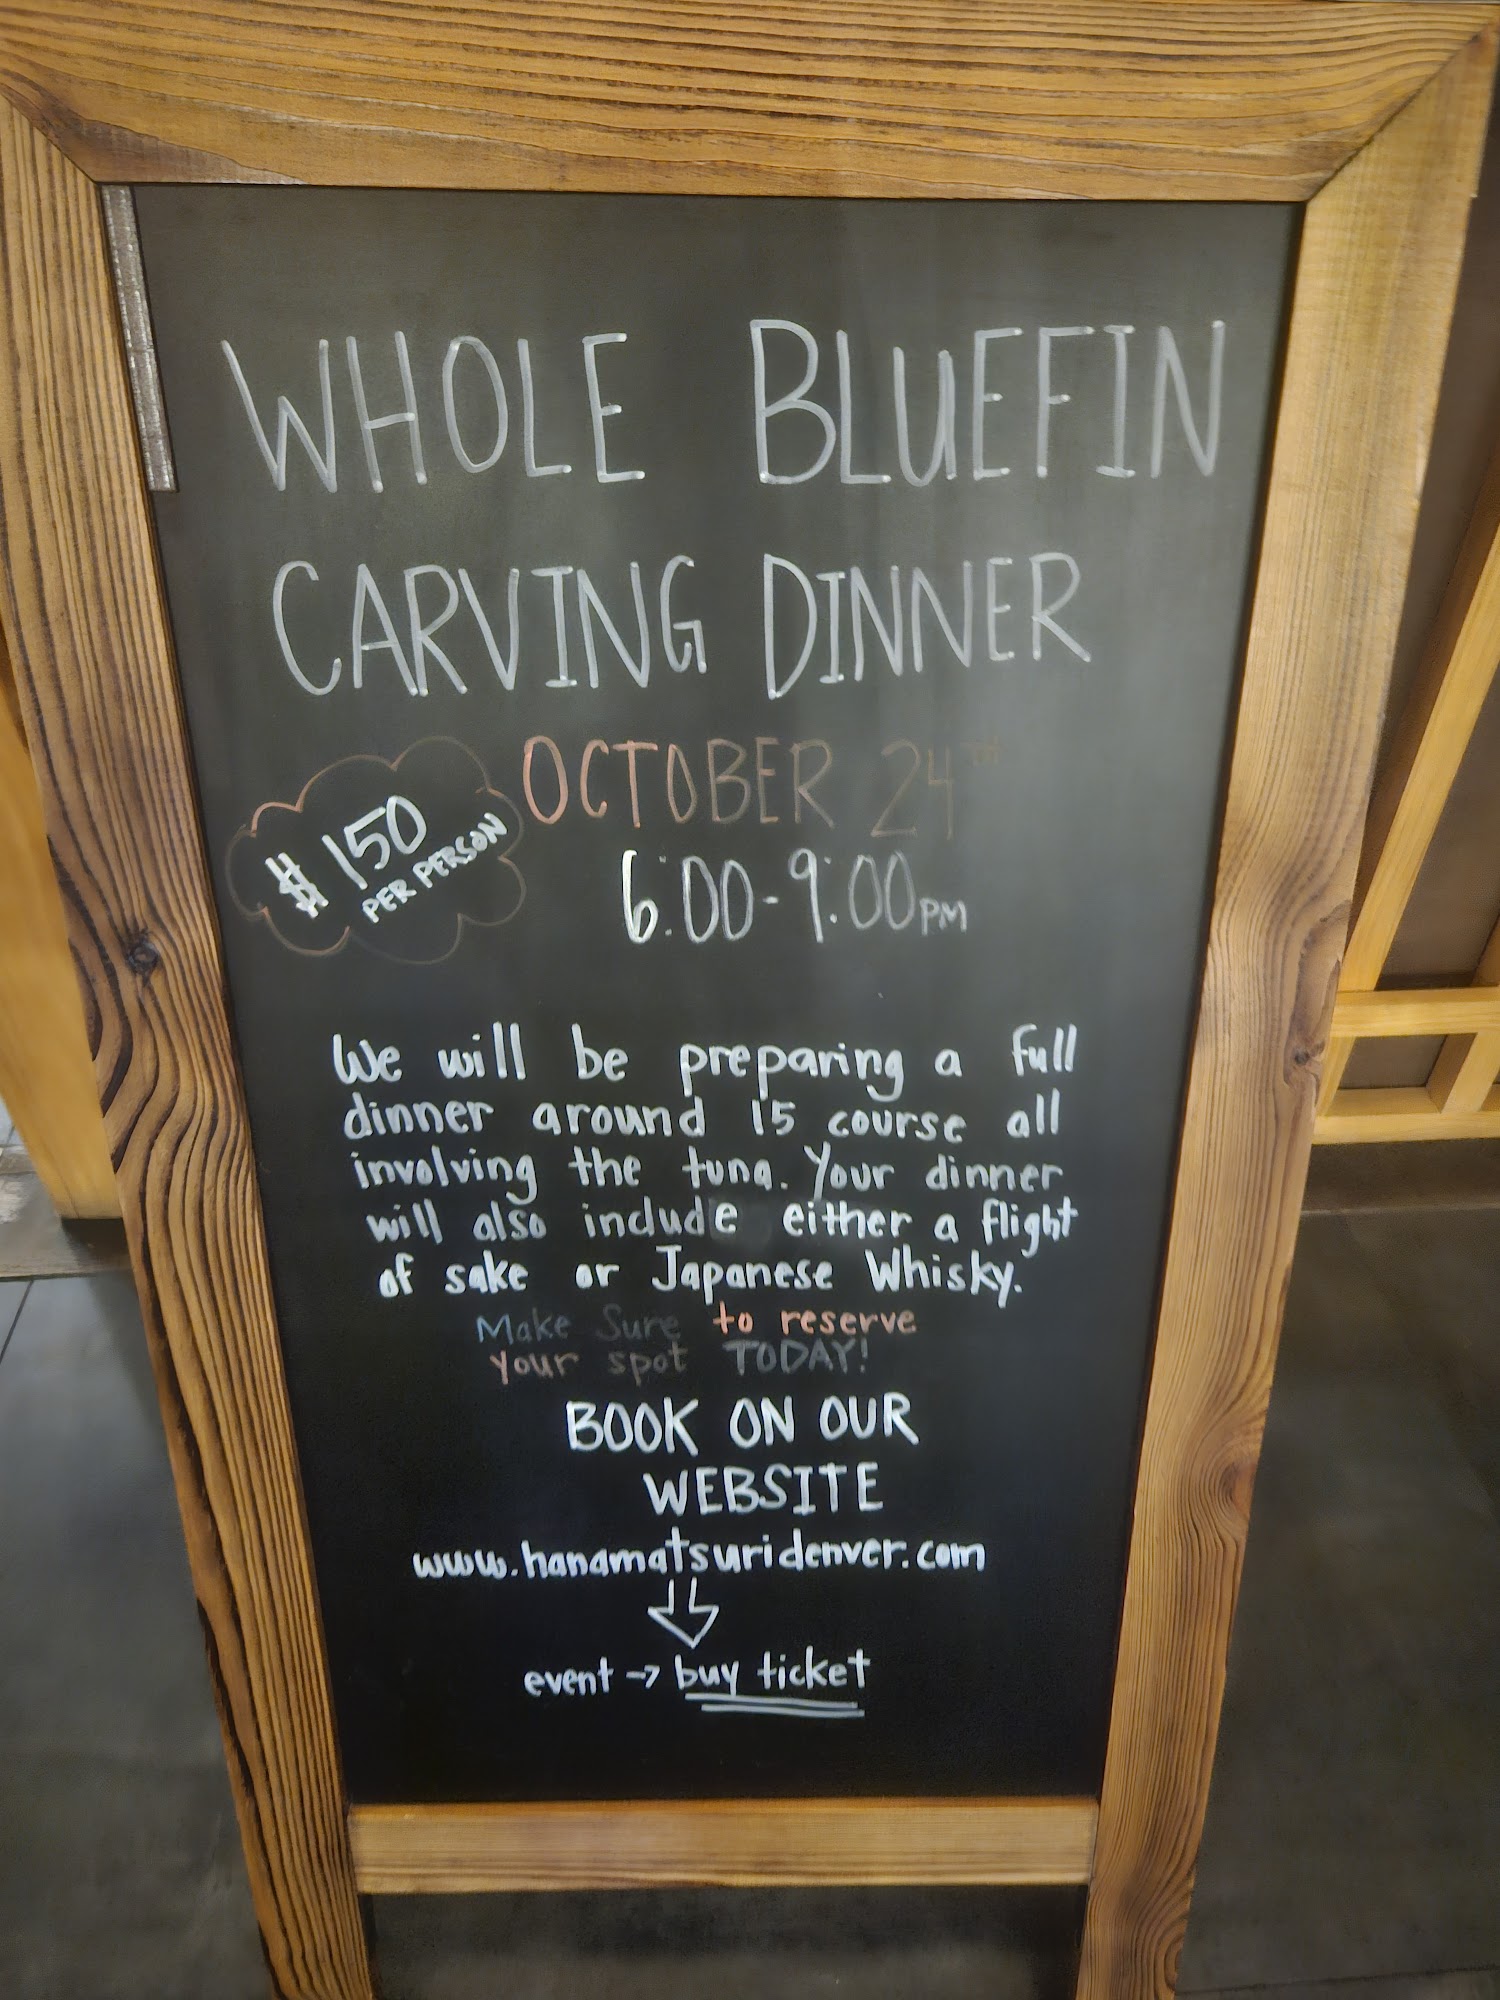 WHOLE BLUEFIN
CARVING DINNER
OCTOBER 24TH
$150
PER PERSON
6:00-9:00PM
We will be preparing a full
dinner around 15 course all
involving the tuna. Your dinner
will also include either a flight
of sake or Japanese Whisky.
Make Sure to reserve
your spot TODAY!
BOOK ON OUR
WEBSITE
www.hanamatsuridenver.com
event → buy ticket